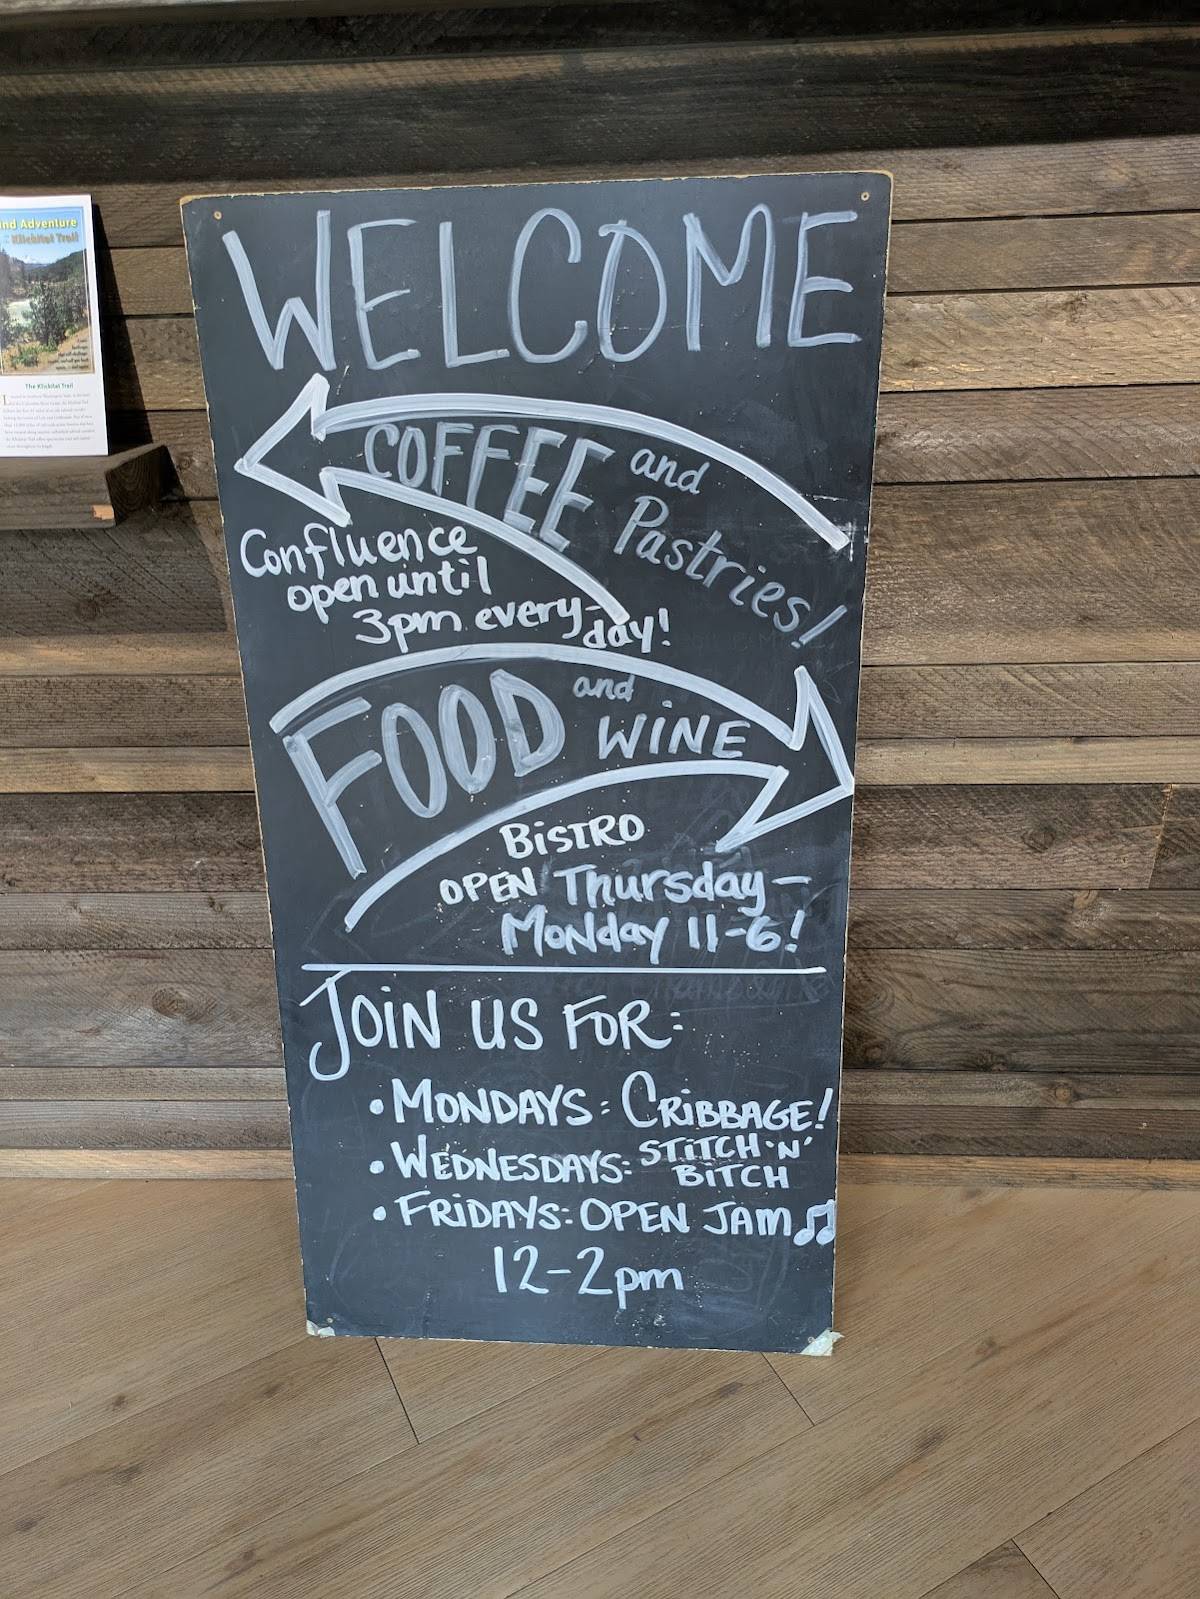 nd Adventure
Klickitat Trail
The Klickitat Trail
WELCOME
COFFEE and
Pastries!
Confluence
open until
3pm every-
day!
FOOD and
WINE
BISTRO
OPEN Thursday-
Monday 11-6!
JOIN US FOR:
• MONDAYS: CRIBBAGE!
• WEDNESDAYS: STITCH 'N'
BITCH
• FRIDAYS: OPEN JAM ♫
12-2pm